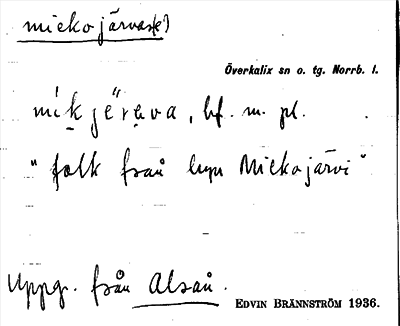 mickojärvas(e)
Överkalix sn o. tg. Norrb. l.
mik̯jërẹva, bf. m. pl.
"folk från byn Mickojärvi"
Uppg. från Alsån.
EDVIN BRÄNNSTRÖM 1936.